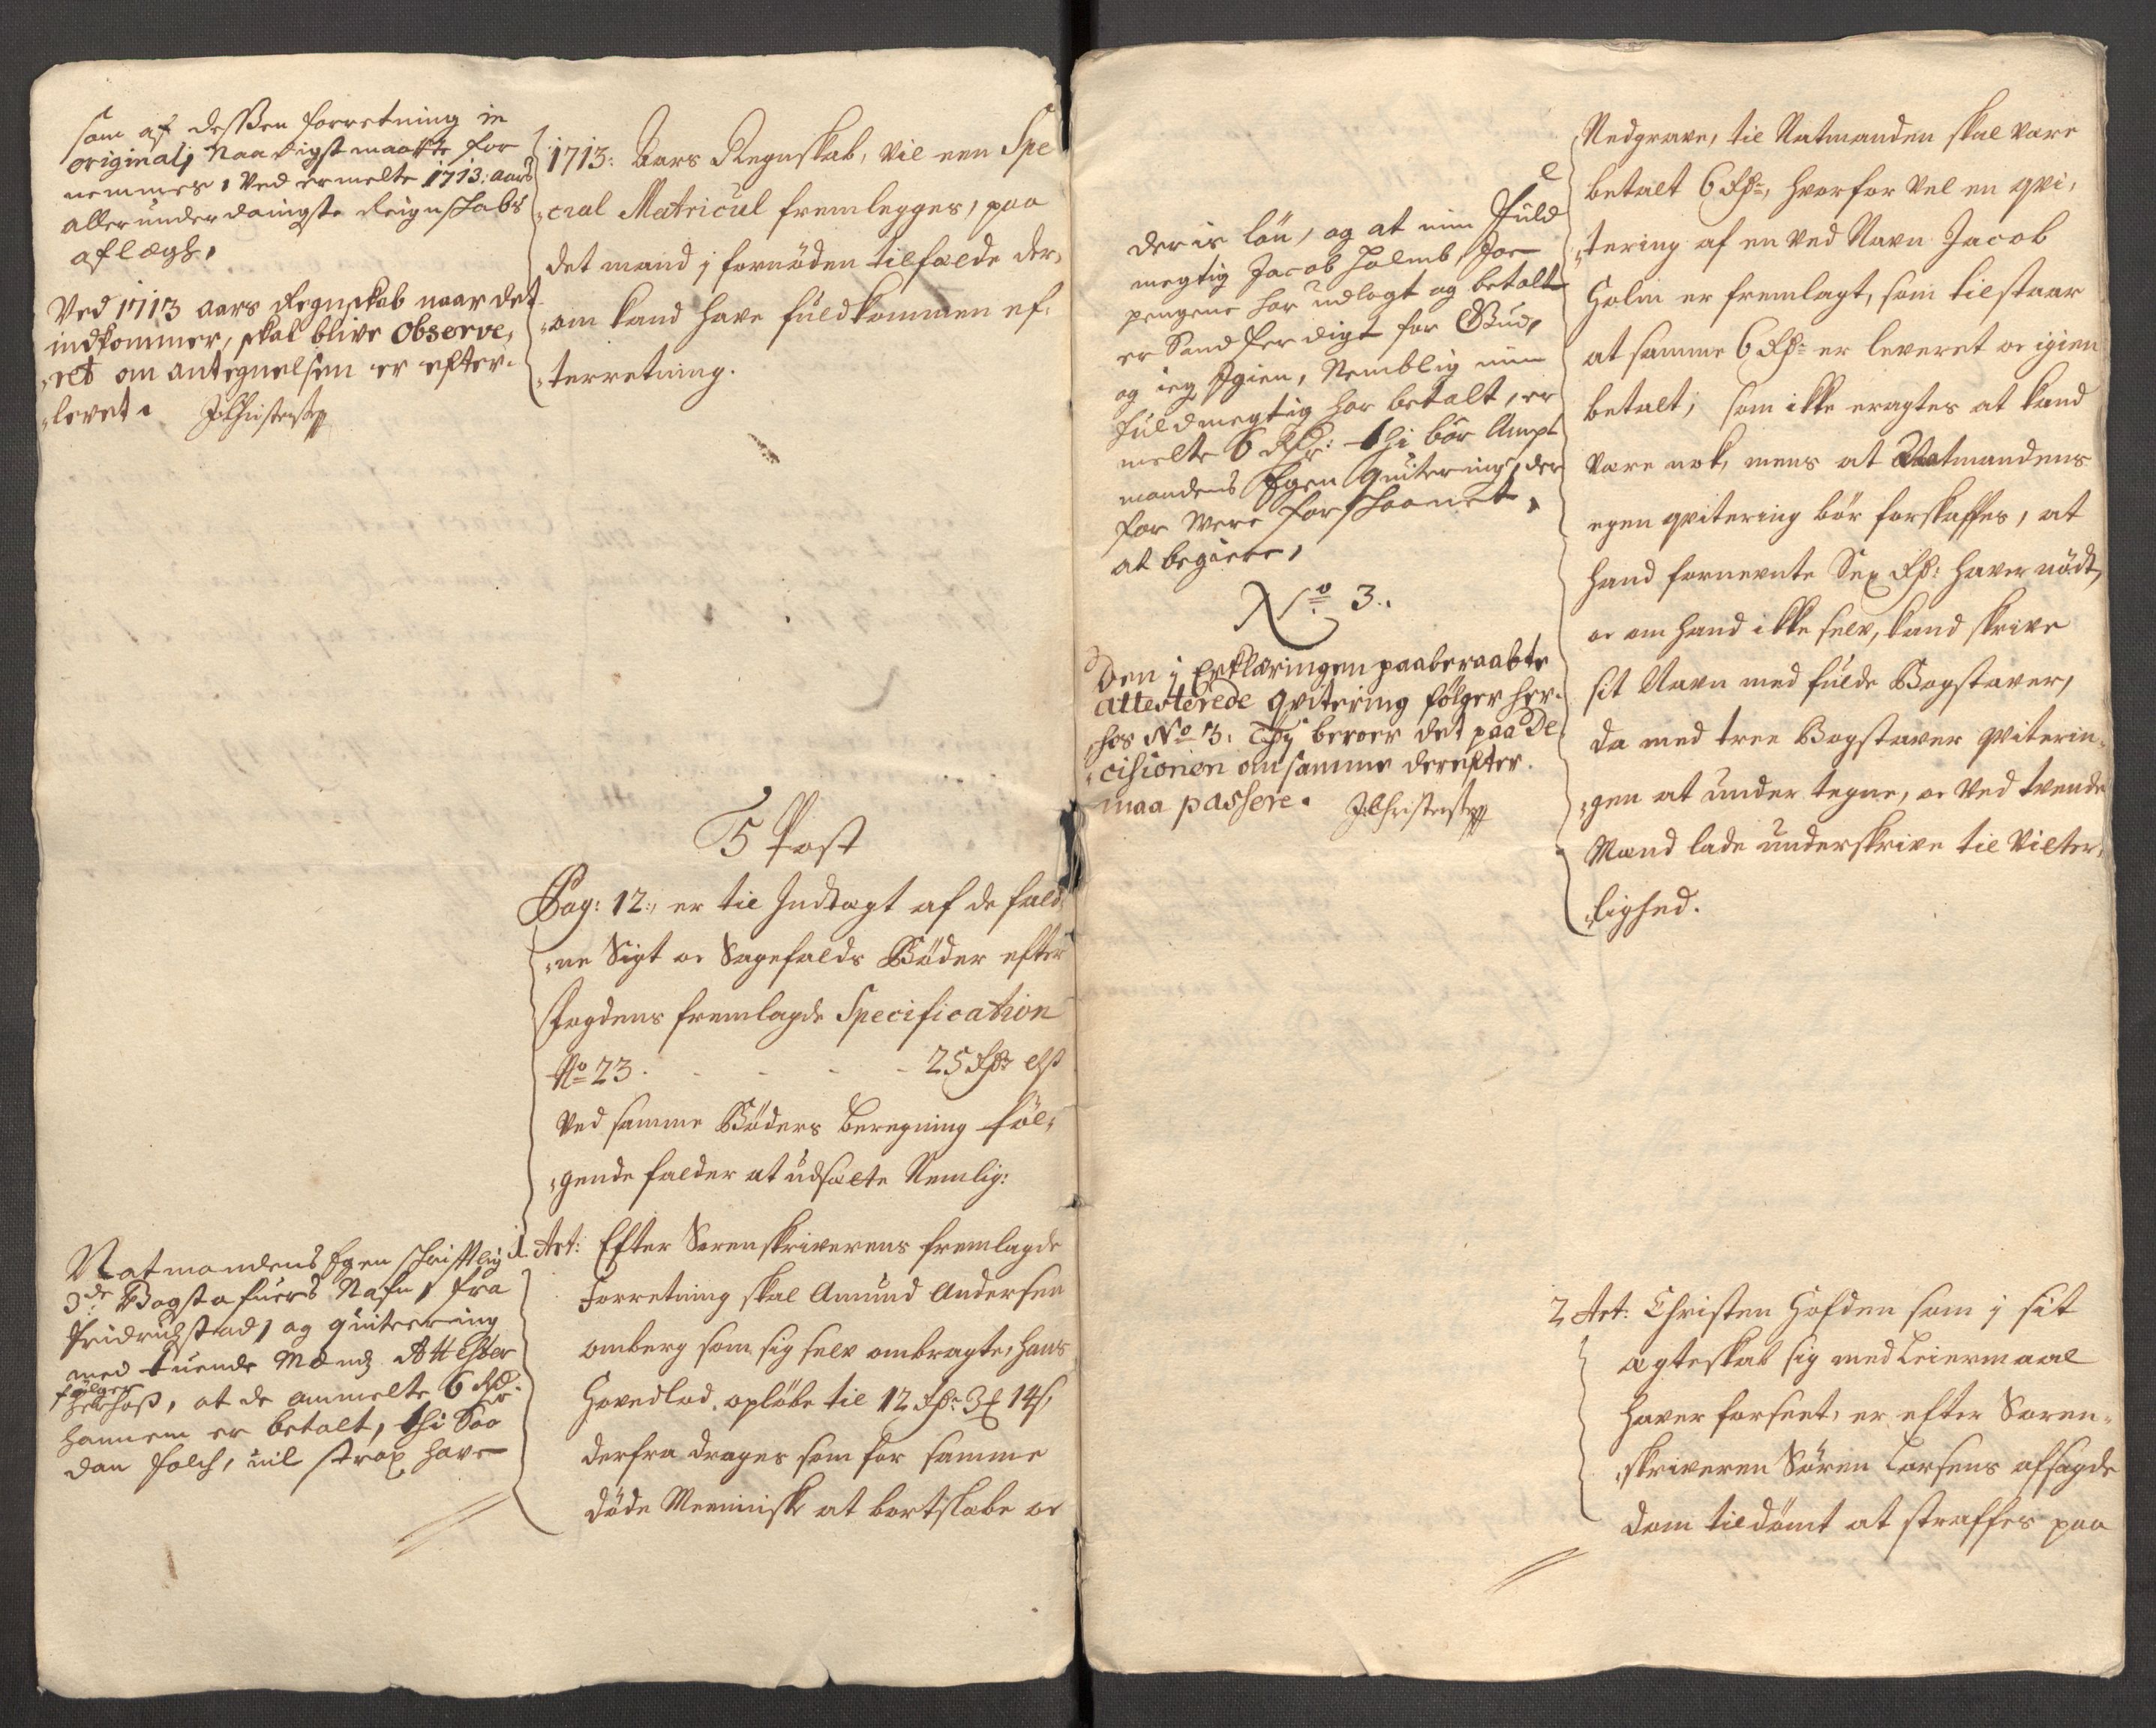 som af deßen forretning in
originali Naadigst maatte for
nemmes, Ved ermelte 1713: aars
allerunderdaingste Reignschabs
aflægh,
Ved 1713 aars Regnskab naar det
indkommer, skal blive observe,
„ret om antegnelsen er efter„
„levet.
1713: Aars Regnskab, vil een Spe
„cial Matricul fremlegges, paa
det mand j fornöden tilfælde der„
„om kand have fuldkommen ef„
„terretning.
5 Post
Pag: 12:, er til Indtægt af de fald„
„ne Sigt oc Sagefalds Böder efter
fogdens fremlagde Specification
No 23. - - - - 25 Rdr
Ved samme Böders beregning föl„
„gende falder at udsætte Nemlig:
Natmandens Egen schrifftlig
3de Bogstafuers Nafn, fra
Fridrichstad, og quiterring
med tuende Mænds Attester
fölger
herhoß, at de ommelte 6 Rdr
hannem er betalt, thi Saa
dan folch, uil strax have
1. Art: Efter Sorenskriverens fremlagde
Forretning skal Amund Andersen
omberg som sig selv ombragte, hans
Hovedlod opløbe til 12 Rdr 3 14 s,
derfra drages som for samme
döde Menniske at bortslæbe oc
deris lön, og at min Fuld
megtig Jacob Holmb, der
pengene har udlagt og betalt
er Sandferdigt for Gud,
og ieg Igien, Nemblig min
fuldmegtig har betalt, er
melte 6 Rdr: thi bör Ampt
mandens Egen Quitering, der
for Were forschaanet,
at begiere,
No 3.
Den j Erklæringen paaberaabte
attesterede qvitering fölger her„
„hos No 3. Thj beroer det paa De
„cisionen om samme derefter
maa passere.
Nedgrave, til Natmanden skal være
betalt 6 Rdr, hvorfor vel en qvi„
„tering af en ved Navn Jacob
Holm er fremlagt, som tilstaar
at samme 6 Rdr er leveret oc igien
betalt, som ikke eragtes at kand
være nok, mens at Natmandens
egen qvitering bör forskaffes, at
hand fornevnte Sex Rdr: haver nödt,
oc om hand ikke selv, kand skrive
sit Navn med fulde Bogstaver,
da med tree Bogstaver qviterin„
„gen at under tegne, oc ved tvende
Mænd lade underskrive til Vitter„
„lighed.
2 Art: Christen Hofden som j sit
ægteskab sig med Leiermaal
haver forseet, er efter Soren„
„skriveren Sören Larsens afsagde
dom tildömt at straffes paa